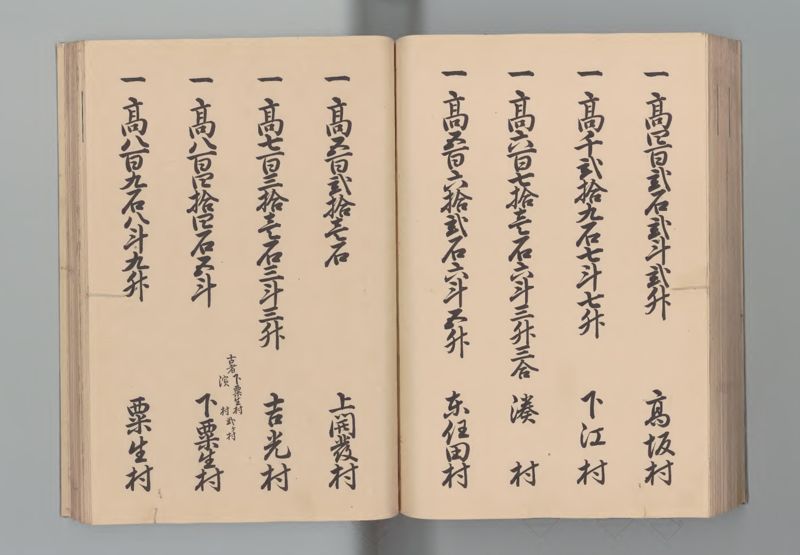 一高四百弐石弐斗弐升 高坂村
一高千弐拾九石七斗七升 下江村
一高六百七拾壱石六斗三升三合 湊村
一高五百六拾弐石六斗五升 東任田村
一高五百弐拾壱石 上開發村
一高七百三拾壱石三斗三升 吉光村
一高八百四拾四石五斗 下粟生村
古者下粟生村
濱村弐ヶ村
一高八百九石八斗九升 粟生村